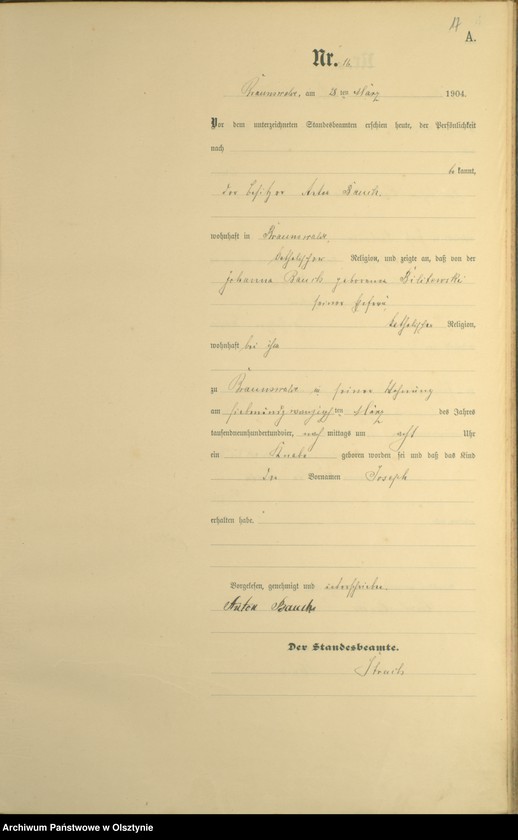 17
A.
Nr. 16.
Braunswalde, am 28 ten März 1904.
Vor dem unterzeichneten Standesbeamten erschien heute, der Persönlichkeit
nach
be kannt,
der Besitzer Anton Bauch
wohnhaft in Braunswalde
katholischer Religion, und zeigte an, daß von der
Johanna Bauch geborenen Bilitewski
seiner Ehefrau
katholischer Religion,
wohnhaft bei ihm
zu Braunswalde in seiner Wohnung
am siebenundzwanzigsten März des Jahres
tausendneunhundertundvier, nach mittags um acht Uhr
ein Knabe geboren worden sei und daß das Kind
den Vornamen Joseph
erhalten habe.
Vorgelesen, genehmigt und unterschrieben.
Anton Bauch
Der Standesbeamte.
Archiwum Państwowe w Olsztynie